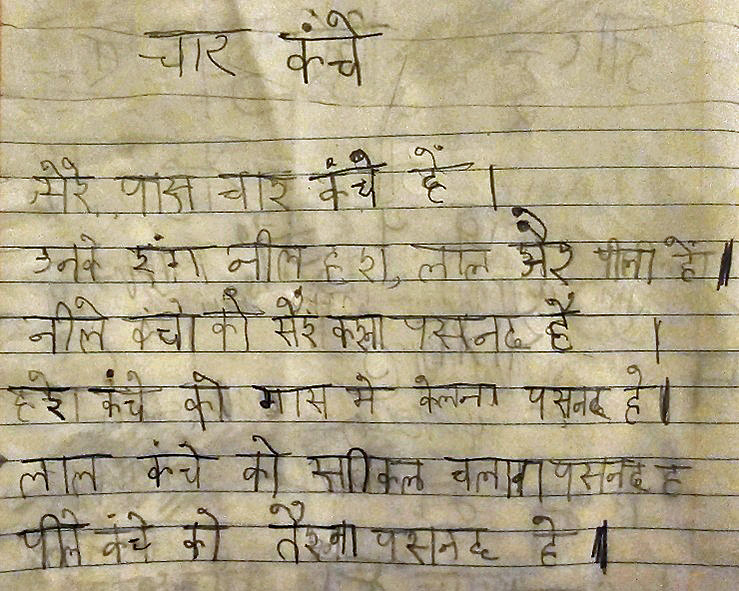 चार कंचे
मेरे पास चार कंचे हैं |
उनके रंग नील हरा, लाल और पीला हैं |
नीले कंचो को सैर करना पसनद है |
हरे कंचे को मास मे केलना पसनद है |
लाल कंचे को साीकल चलाना पसनद ह
पीले कंचे को तैरना पसनद है |